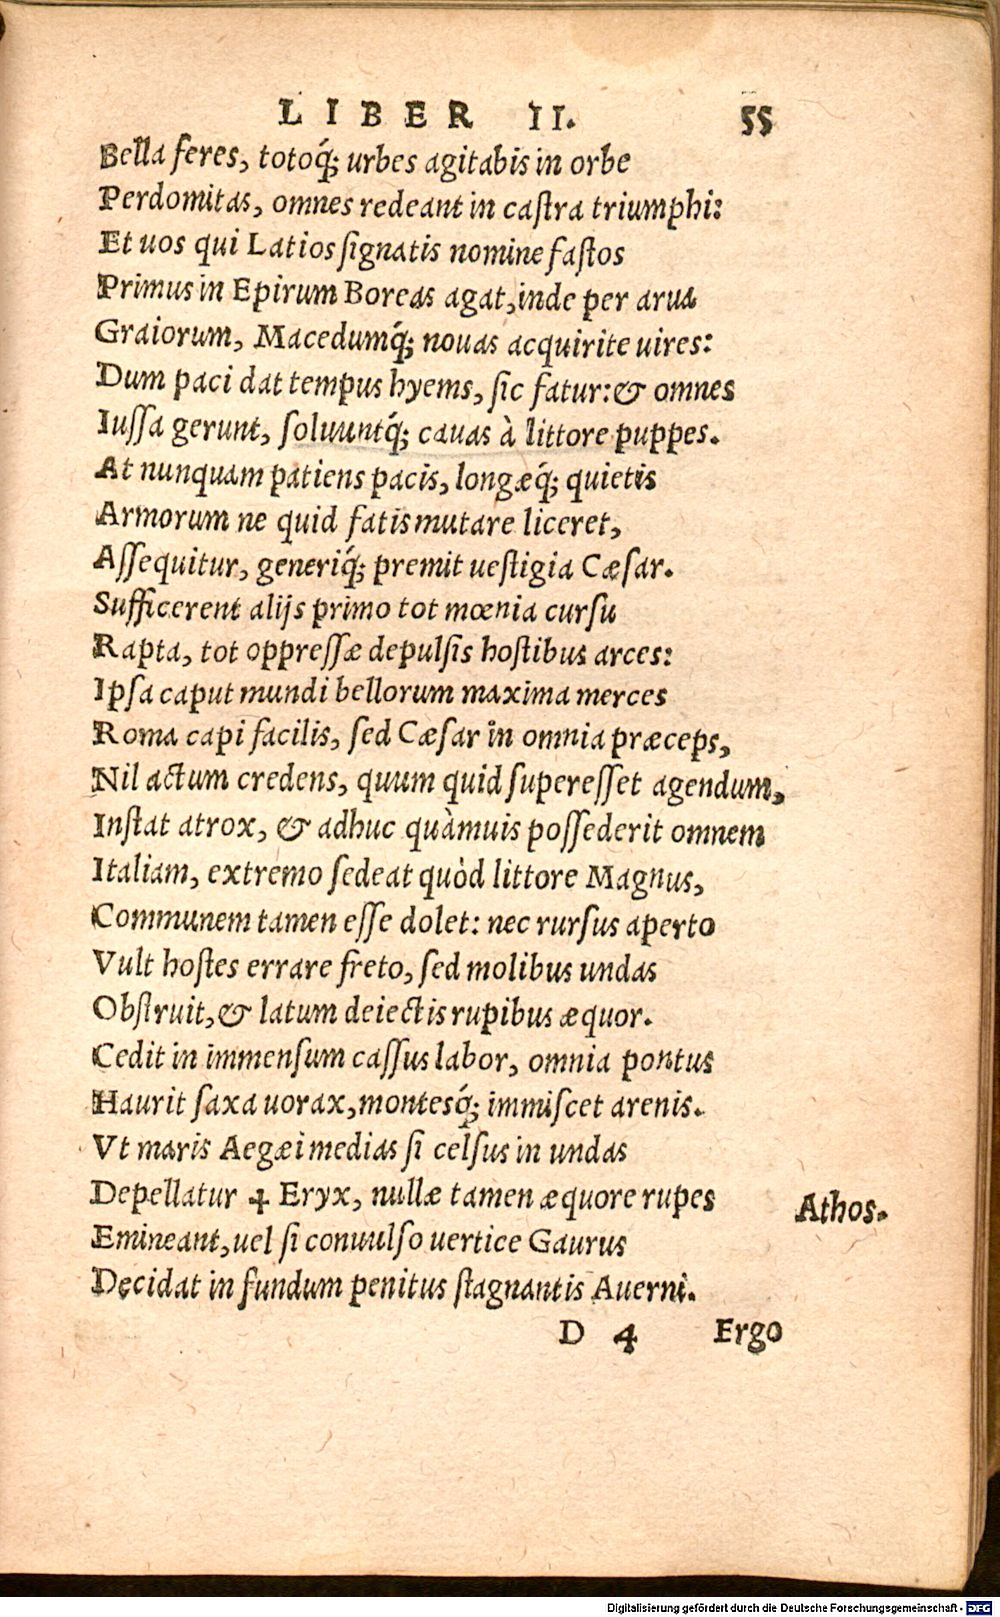 LIBER II. 55
Bella feres, totoq́; urbes agitabis in orbe
Perdomitas, omnes redeant in caſtra triumphi:
Et uos qui Latios ſignatis nomine faſtos
Primus in Epirum Boreas agat, inde per arua
Graiorum, Macedumq́; nouas acquirite uires:
Dum paci dat tempus hyems, ſic fatur: & omnes
Iuſſa gerunt, ſoluuntq́; cauas à littore puppes.
At nunquam patiens pacis, longæq́; quietis
Armorum ne quid fatis mutare liceret,
Aſſequitur, generiq́; premit ueſtigia Cæſar.
Sufficerent alijs primo tot mœnia curſu
Rapta, tot oppreſſæ depulſis hoſtibus arces:
Ipſa caput mundi bellorum maxima merces
Roma capi facilis, ſed Cæſar in omnia præceps,
Nil actum credens, quum quid ſupereſſet agendum,
Inſtat atrox, & adhuc quàmuis poſſederit omnem
Italiam, extremo ſedeat quòd littore Magnus,
Communem tamen eſſe dolet: nec rurſus aperto
Vult hoſtes errare freto, ſed molibus undas
Obſtruit, & latum deiectis rupibus æquor.
Cedit in immenſum caſſus labor, omnia pontus
Haurit ſaxa uorax, montesq́; immiſcet arenis.
Vt maris Aegæi medias ſi celſus in undas
Depellatur ☩ Eryx, nullæ tamen æquore rupes
Athos.
Emineant, uel ſi conuulſo uertice Gaurus
Decidat in fundum penitus ſtagnantis Auerni.
D 4 Ergo
Digitalisierung gefördert durch die Deutsche Forschungsgemeinschaft - DFG